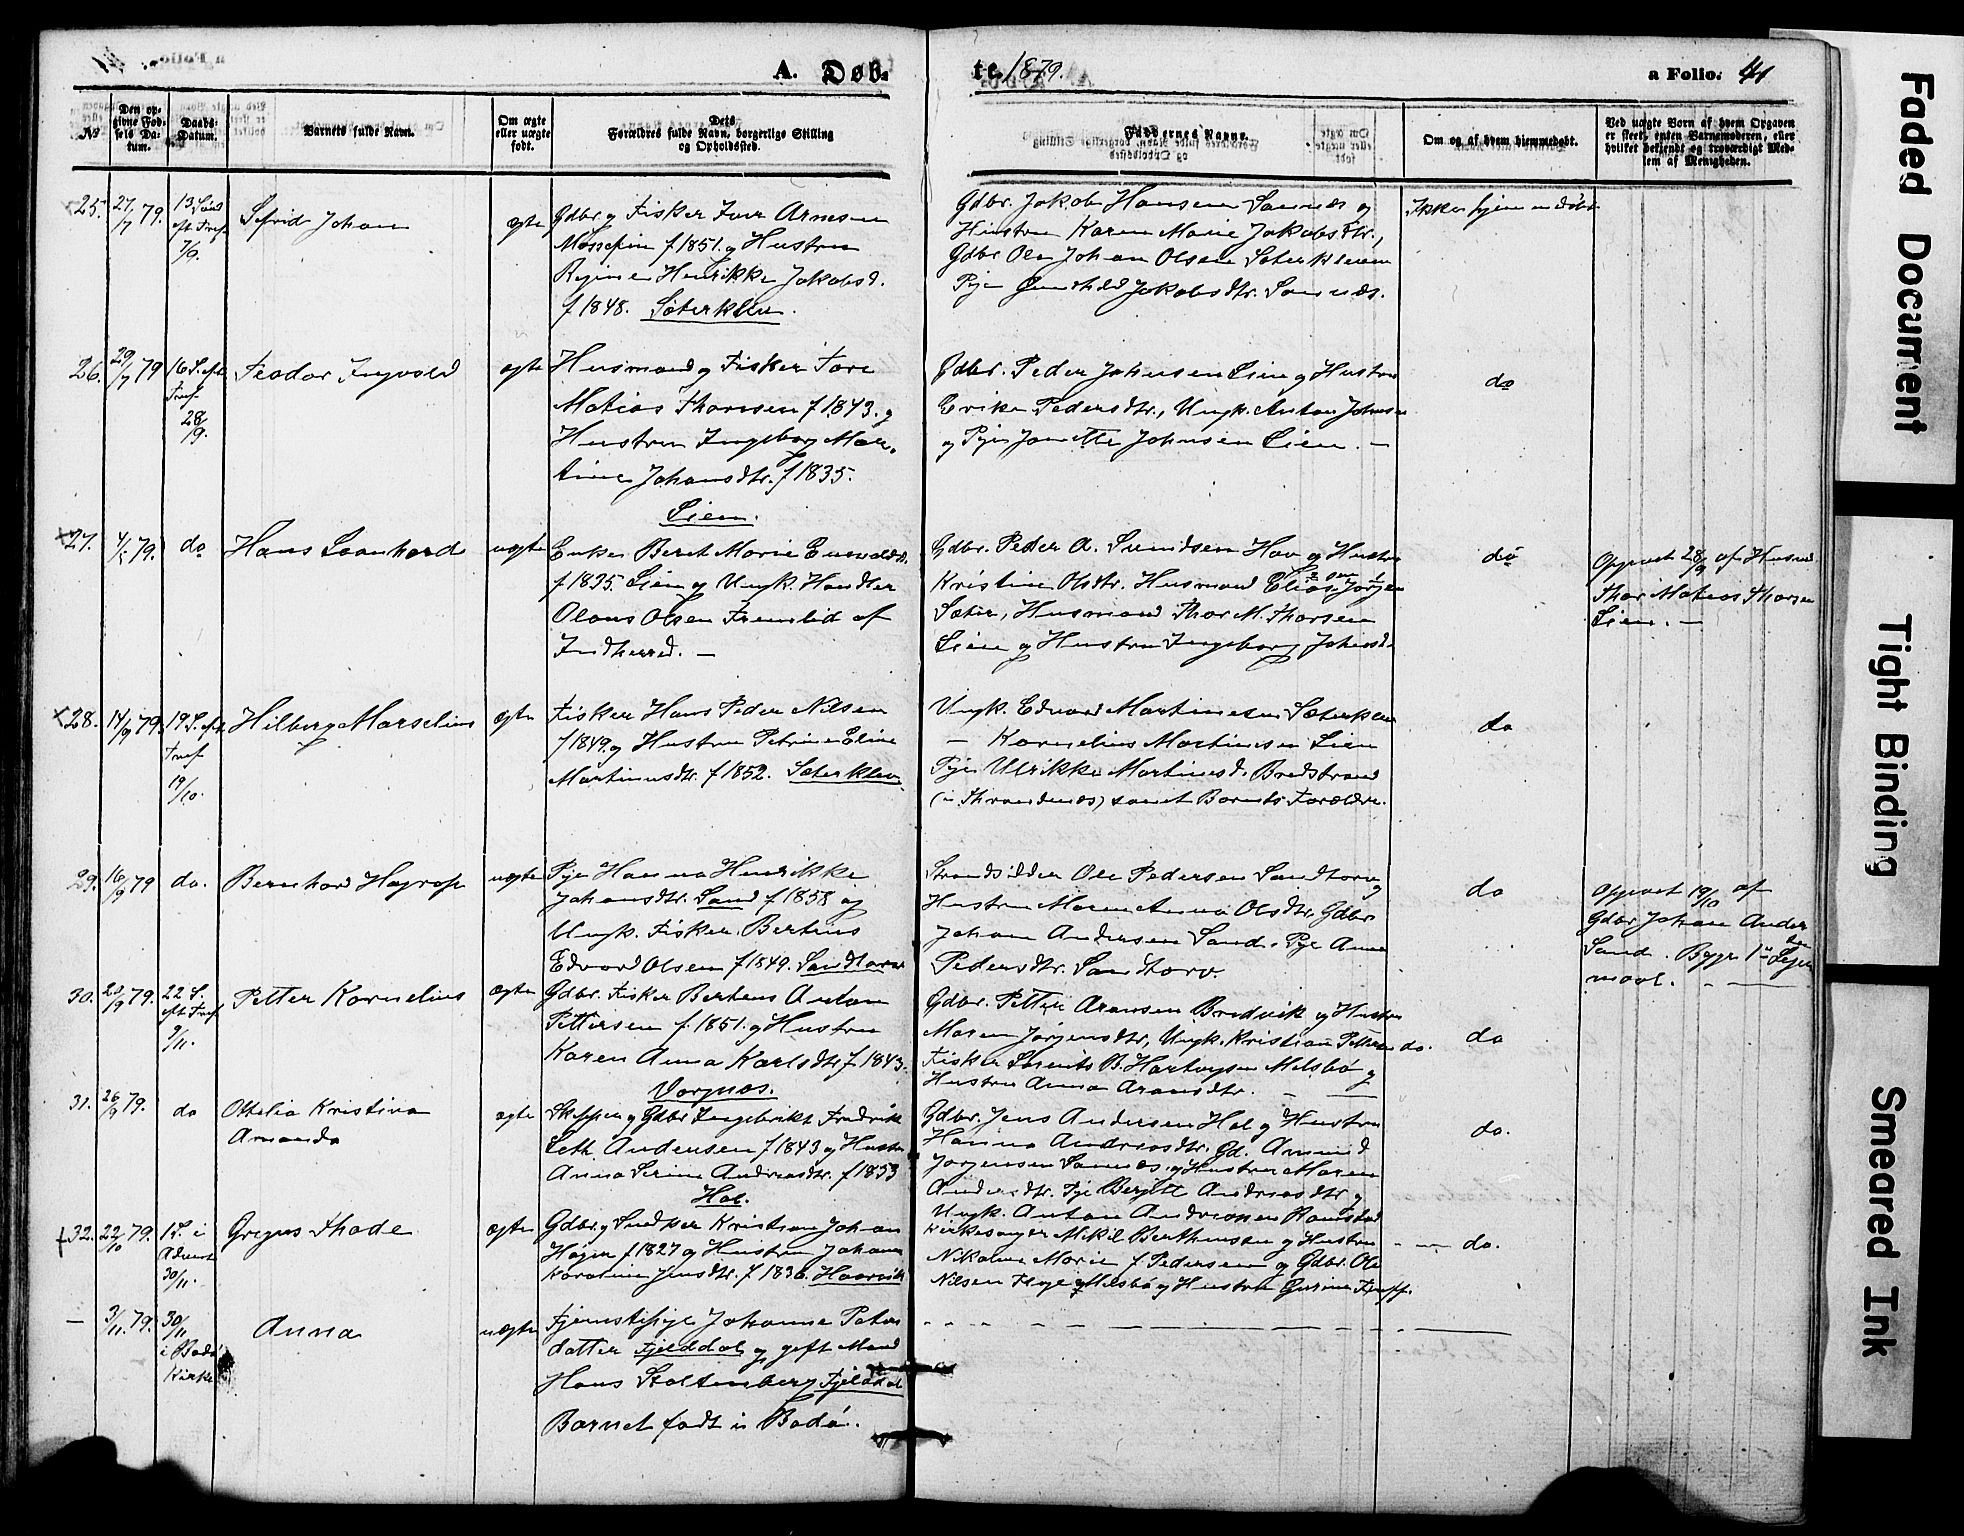 A. Døb-
te. 1879.
a Folio. 41
No
Den op-
givne Fød-
sels Da-
tum.
Daabs-
Datum.
Barnets fulde Navn.
Om ægte
eller uægte
født.
Dets
Forældres fulde Navn, borgerlige Stilling
og Opholdssted.
Faddernes Navne.
Om og af hvem hjemmedøbt.
Ved uægte Børn af hvem Opgaven
er skeet, enten Barnemoderen, eller
hvilket bekjendt og troværdigt Med-
lem af Menigheden.
25. 27/7 79. 13 Sönd
eft Tref
7/9.
Johan
ægte
Gdbr. og Fisker Iver Arnesen
f 1851. og Hustru
Henrikke Jakobsd.
f 1848. Sæterklev.
Gdbr. Jakob Hansen Sannæs og
Hustru Karen Marie Jakobsdtr.,
Gdbr Ole Johan Olsen Sæterkleven
Pige Jakobsdtr. Sannæs.
Ikke hjemmedöbt
26. 29/7 79 16 S. eft
Tref
28/9.
Teodor Ingvold
ægte
Husmand og Fisker Tore
Matias Thorsen f 1843. og
Hustru Ingeborg Mar-
tine Johansdtr. f 1835.
Lien.
Gdbr. Peder Johnsen Lien og Hustru
Erika Pedersdtr., Ungk. Anton Johnsen
og Pige Janette Johnsen Lien. —
do
27. 79. do
Hans Leonhard
uægte
Enke Beret Marie
f 1835 Lien og Ungk. Handler
Olaus Olsen Fremlid af
Indherred. —
Gdbr. Peder A. Hov og Hustru
Kristine Olsdtr. Husmand Elias Jörgen
Sæter, Husmand Thor M. Thorsen
Lien og Hustru Ingeborg Johansd.
do
Opgivet 28/9 af Husmd
Thor Matias Thorsen
Lien. —
28. 14/9 79. 19 S. eft
Tref
19/10.
Hilberg Marselius
ægte
Fisker Hans Peder Nilsen
f 1849. og Hustru Petrine Eline
Martinusdtr. f 1852. Sæterklev.
Ungk. Edvard Martinesen Sæterklev
— Kornelius Martinesen Lien
Pige Ulrikke Martinusd. Bredstrand
(i Throndenæs) samt Barnets Forældre.
do
29. 16/9 79 do.
Bernhard Hagrop
uægte
Pige Hanna Henrikke
Johansdtr. Sand f 1858 og
Ungk. Fisker. Bertius
Edvard Olsen f 1849. Sandtorv
Strandsidder Ole Pedersen Sandtorv og
Hustru Maren Anna Olsdtr, Gdbr
Johan Andersen Sand. Pige Anna
Pedersdtr. Sandtorv.
do
Opgivet 19/10 af
Gdbr Johan Ander
sen
Sand. Begge 1ste Leier
maal. —
30. 20/9 79. 22 S.
eft Tref
9/11.
Petter Kornelius
ægte
Gdbr. Fisker Berteus Anton
Pettersen f. 1851. og Hustru
Karen Anna Karlsdtr f 1843.
Vorgnæs.
Gdbr. Petter Aronsen Bredvik og Hustru
Maren Jörgensdtr, Ungk. Kristian Pettersen do.
Fisker Lorents B. Hartvigsen Melsbö og
Hustru Anna Aronsdtr. —
do
31. 26/9 79. do
Othelia Kristina
Amanda
ægte
Skipper og Gdbr Ingebrikt Fredrik
Leth Andersen f 1843 og Hustru
Anna Serine Andreasdtr. f 1853
Hol.
Gdbr. Jens Andersen Hol og Hustru
Hanna Andreasdtr. Gd. Amund
Jörgensen Sannæs, og Hustru Maren
Andersdtr. Pige Bergitte Andreasdtr og
Ungk. Anton Andreasen
do.
32. 22/10 79. 1 S. i
Advent
30/11.
Gregus Thode
ægte
Gdbr. og Snedker Kristian Johan
Höjer f 1827 og Hustru Johanna
Karoline Jensdtr. f 1836. Haarvik
Kirkesanger Mikal Berthensen og Hustru
Nikoline Marie f Pedersen og Gdbr. Ole
Nilsen Melsbö og Hustru
do.
— 3/11. 79. 30/11
i Bodö
Kirke
Anna
uægte
Tjenestepige Johanna Peters
datter Fjelddal og gift Mand
Hans Stoltenberg Fjelddal
Barnet födt i Bodö.
Faded Document
Tight Binding
Smeared Ink